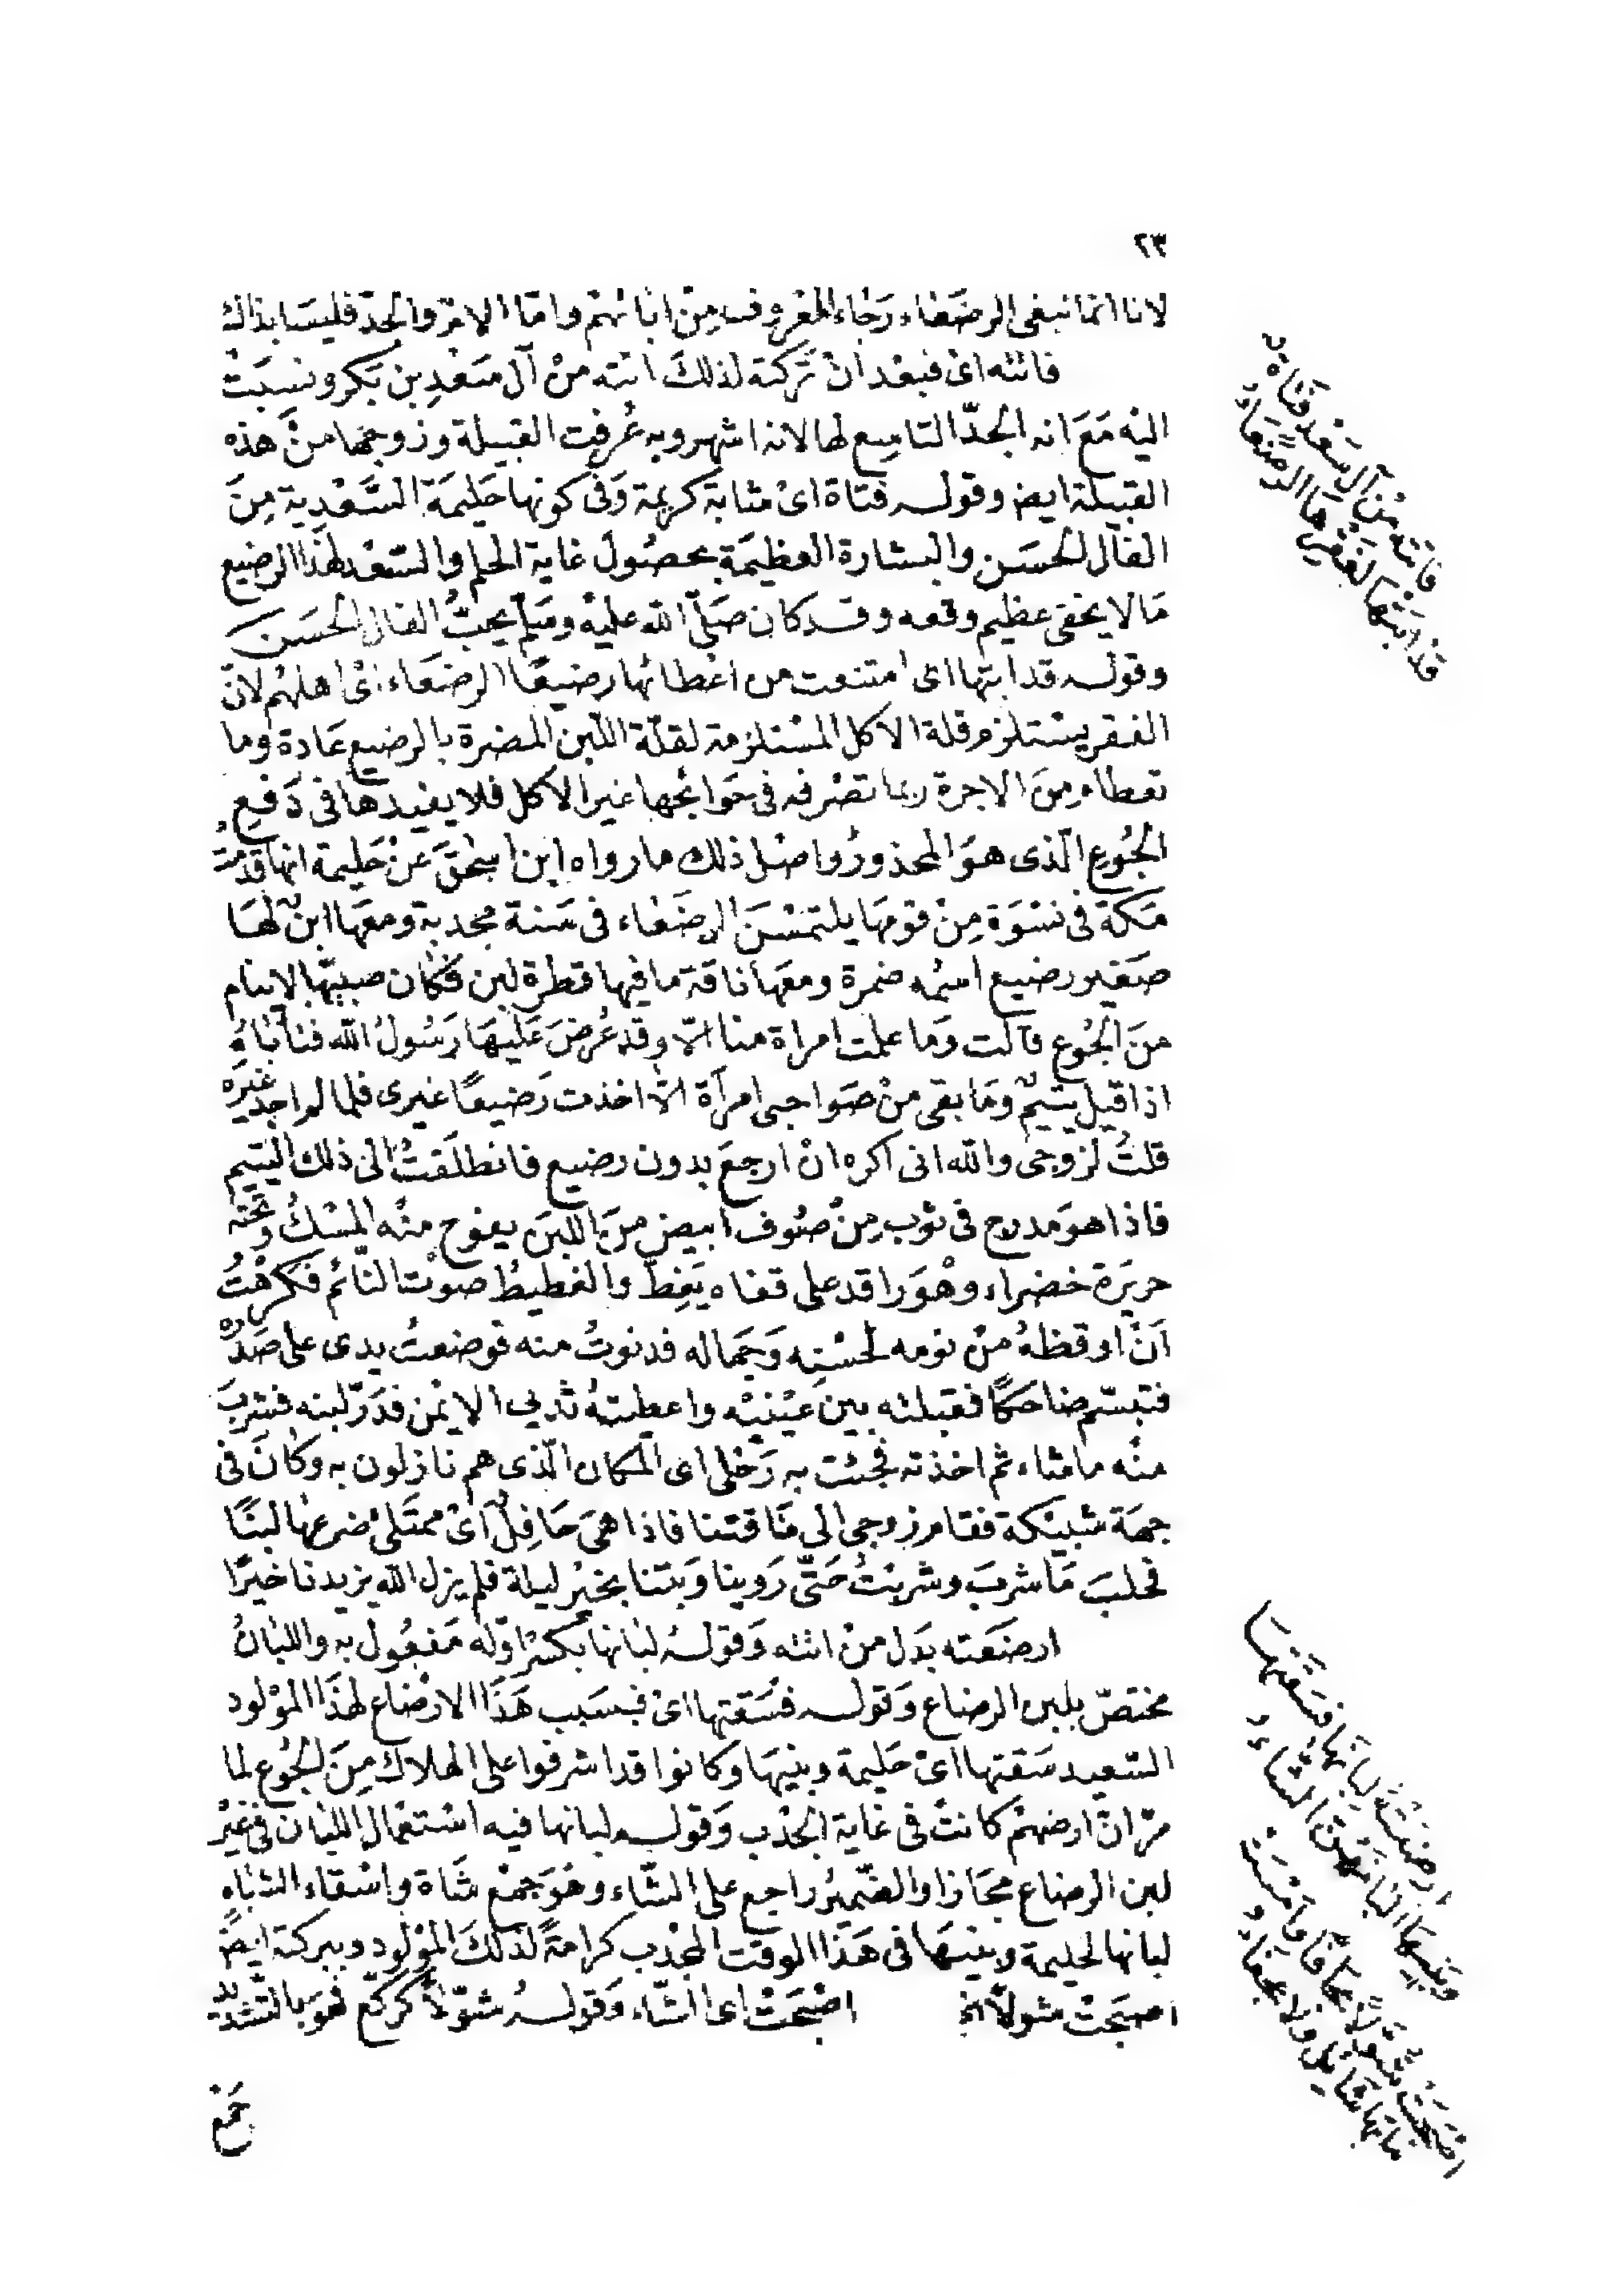 ٢٣
لانا انما نبغى الرضعاء رجاء المعروف من ابائهم واما الام والجد فليسا بذاك
فاتته اى فبعد ان تركنه لذلك اتته من آل سعد بن بكر ونسبت
اليه مع انه الجد التاسع لها لانه اشهر وبه عرفت القبيلة وزوجها من هذه
القبيلة ايض وقوله فتاة اى شابة كريمة وفى كونها حليمة السعدية من
الفال الحسن والبشارة العظيمة بحصول غاية الحلم والسعد لهذا الرضيع
ما لا يخفى عظيم وقعه وقد كان صلى الله عليه وسلم يحب الفال الحسن
وقوله قد ابتها اى امتنعت من اعطائها رضيعا الرضعاء اى اهلهم لان
الفقر يستلزم قلة الاكل المستلزمة لقلة اللبن المضرة بالرضيع عادة وما
تعطاه من الاجرة ربما تصرفه فى حوائجها غير الاكل فلا يفيدها فى دفع
الجوع الذى هو المحذور واصل ذلك ما رواه ابن اسحق عن حليمة انها قدمت
مكة فى نسوة من قومها يلتمسن الرضعاء فى سنة مجدبة ومعها ابن لها
صغير رضيع اسمه ضمرة ومعها ناقة ما فيها قطرة لبن فكان صبيها لا ينام
من الجوع قالت وما علمت امراة منا الا وقد عرض عليها رسول الله فتاباه
اذا قيل يتيم وما بقى من صواحبى امرأة الا اخذت رضيعا غيرى فلما لم اجد غيره
قلت لزوجى والله انى اكره ان ارجع بدون رضيع فانطلقت الى ذلك اليتيم
فاذا هو مدرج فى ثوب من صوف ابيض من اللبن يفوح منه المسك وتحته
حريرة خضراء وهو راقد على قفاه يغط والغطيط صوت النائم فكرهت
ان اوقظه من نومه لحسنه وجماله فدنوت منه فوضعت يدى على صدره
فتبسم ضاحكا فقبلته بين عينيه واعطيته ثديى الايمن فدر لبنه فشرب
منه ما شاء ثم اخذته فجئت به رحلى اى المكان الذى هم نازلون به وكان فى
جهة شبيكة فقام زوجى الى ناقتنا فاذا هى حافل اى ممتلئ ضرعها لبنا
فحلب ما شرب وشربت حتى روينا وبتنا بخير ليلة فلم يزل الله يزيدنا خيرا
ارضعته بدل من اتته وقوله لبانها بكسر اوله مفعول به واللبان
مختص بلبن الرضاع وقوله فسقتها اى فبسبب هذا الارضاع لهذا المولود
السعيد سقتها اى حليمة وبنيها وكانوا قد اشرفوا على الهلاك من الجوع لما
مر ان ارضهم كانت فى غاية الجدب وقوله لبانها فيه استعمال اللبان فى غير
لبن الرضاع مجازا والضمير راجع على الشاء وهو جمع شاة واسقاء الشاه
لبانها لحليمة وبنيها فى هذا الوقت المجدب كرامة لذلك المولود وببركته ايض
اصبحت شولا الخ اصبحت اى الشاء وقوله شولا كركع فهو بالتشديد
جمع
فاتته من آل سعد فتاة
قد ابتها لفقرها الرضعاء
ارضعته لبانها فسقتها
وبنيها البانهن الشاء
اصبحت شولا عجافا وامست
ما بها شائل ولا عجفاء